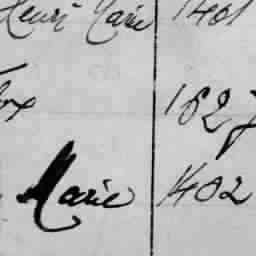 Henri Marie 1401
1627
Marie 1402